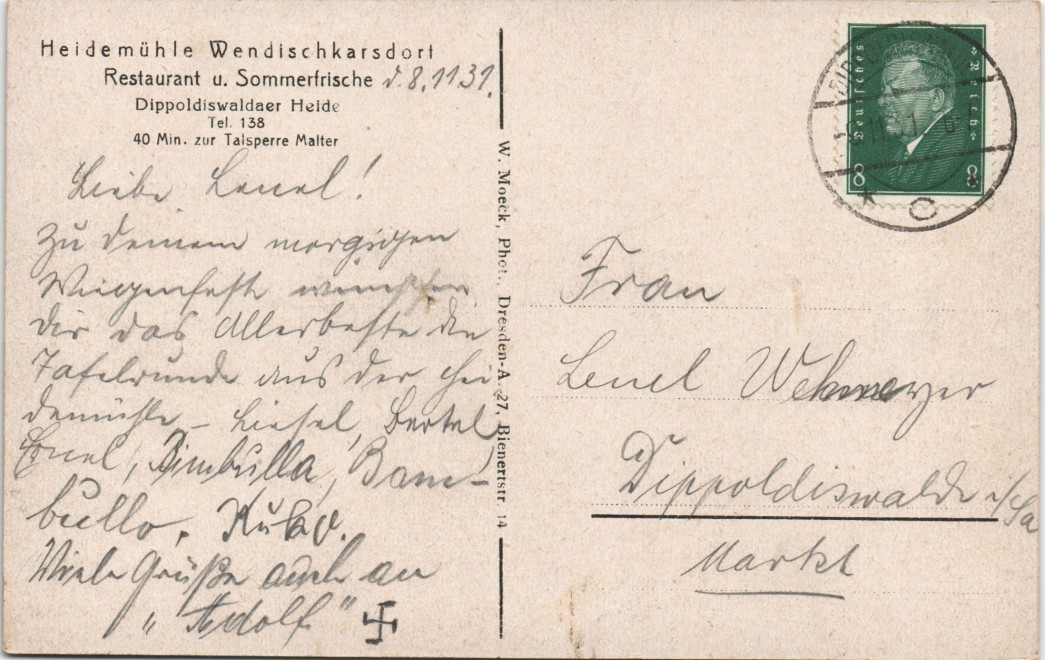 Heidemühle Wendischkarsdorf
Restaurant u. Sommerfrische d. 8.11.31.
Dippoldiswaldaer Heide
Tel. 138
40 Min. zur Talsperre Malter
Liebe Lenel!
Zu deinem morgigen
Wiegenfeste wünschen
dir das Allerbeste die
Tafelrunde aus der Hei
demühle – Liesel, Bertel
Bimbulla, Bam-
bullo,
Viele Grüße auch an
„Adolf" 卐
W. Moeck, Phot., Dresden-A. 27, Bienertstr. 14
Deutsches Reich
8 8
Frau
Lenel Wehmeyer
Dippoldiswalde i/Sa
Markt